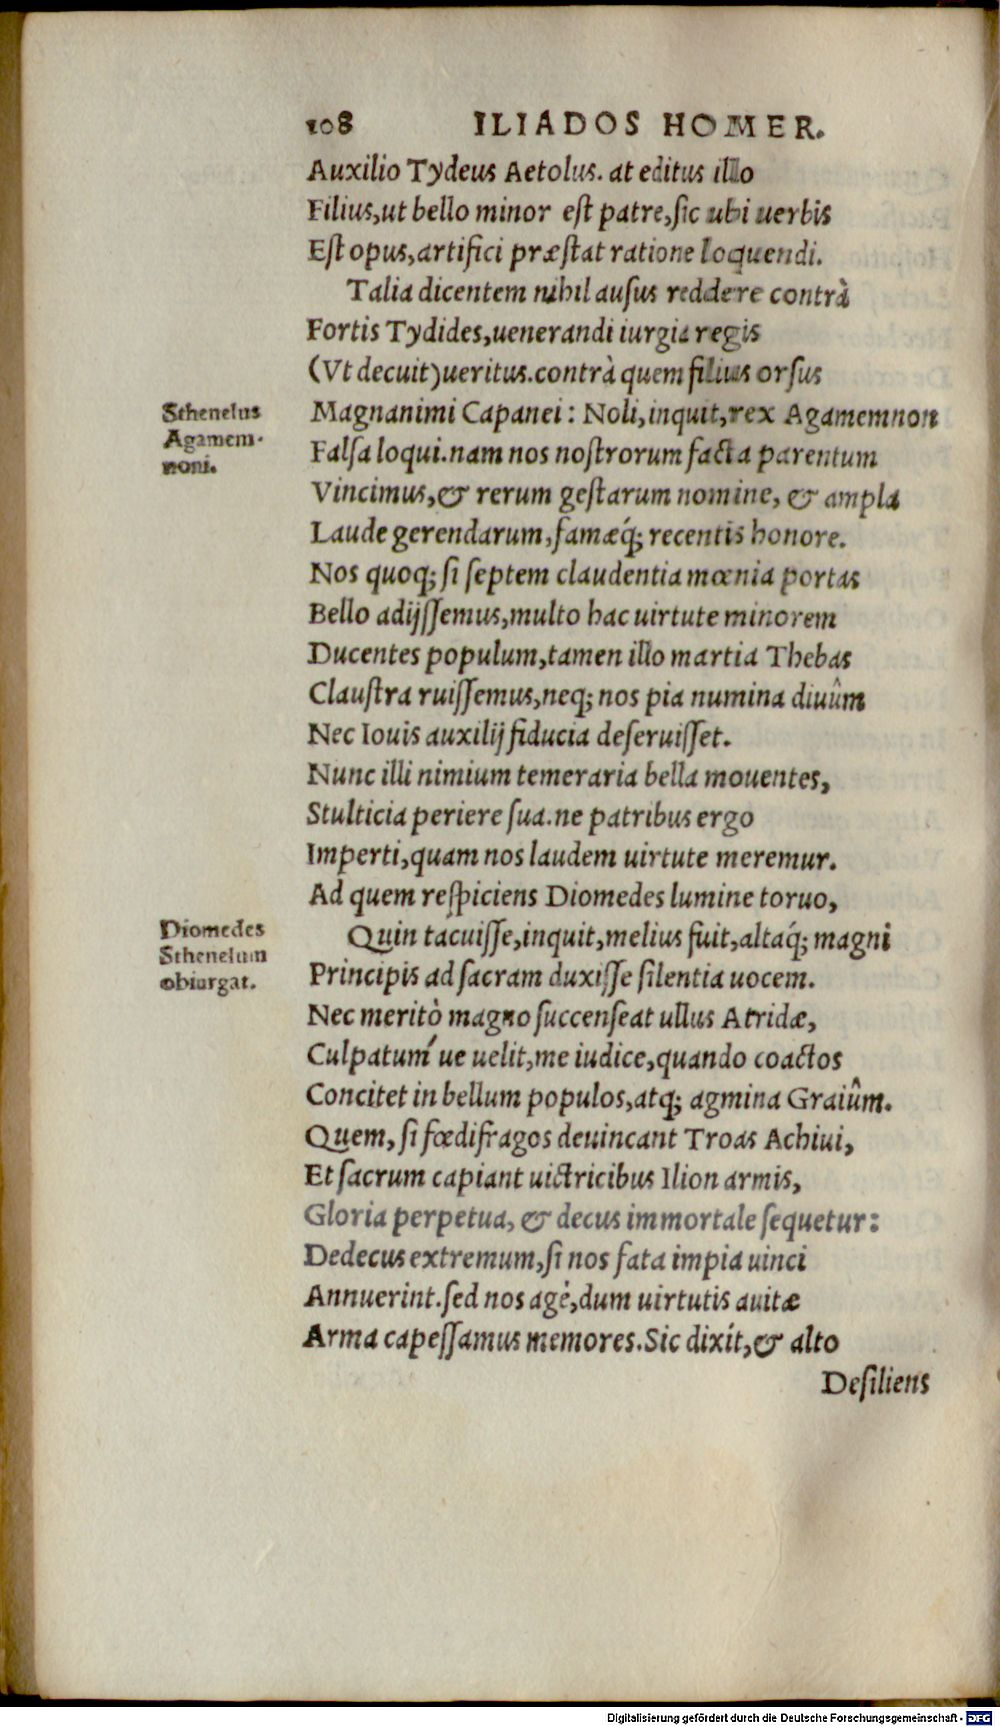 108 ILIADOS HOMER.
Auxilio Tydeus Aetolus. at editus illo
Filius,ut bello minor eſt patre,ſic ubi uerbis
Eſt opus,artifici præſtat ratione loquendi.
Talia dicentem nihil auſus reddere contrà
Fortis Tydides,uenerandi iurgia regis
(Vt decuit)ueritus.contrà quem filius orſus
Sthenelus
Agamem-
noni.
Magnanimi Capanei: Noli,inquit,rex Agamemnon
Falſa loqui.nam nos noſtrorum facta parentum
Vincimus,& rerum geſtarum nomine, & ampla
Laude gerendarum,famæq́; recentis honore.
Nos quoq; ſi ſeptem claudentia mœnia portas
Bello adijſſemus,multo hac uirtute minorem
Ducentes populum,tamen illo martia Thebas
Clauſtra ruiſſemus,neq; nos pia numina diuûm
Nec Iouis auxilij fiducia deſeruiſſet.
Nunc illi nimium temeraria bella mouentes,
Stulticia periere ſua.ne patribus ergo
Imperti,quam nos laudem uirtute meremur.
Ad quem reſpiciens Diomedes lumine toruo,
Diomedes
Sthenelum
obiurgat.
Quin tacuiſſe,inquit,melius fuit,altaq́; magni
Principis ad ſacram duxiſſe ſilentia uocem.
Nec meritò magno ſuccenſeat ullus Atridæ,
Culpatum´ue uelit,me iudice,quando coactos
Concitet in bellum populos,atq; agmina Graiûm.
Quem, ſi fœdifragos deuincant Troas Achiui,
Et ſacrum capiant uictricibus Ilion armis,
Gloria perpetua, & decus immortale ſequetur:
Dedecus extremum,ſi nos fata impia uinci
Annuerint.ſed nos agè,dum uirtutis auitæ
Arma capeſſamus memores.Sic dixit,& alto
Deſiliens
Digitalisierung gefördert durch die Deutsche Forschungsgemeinschaft - DFG